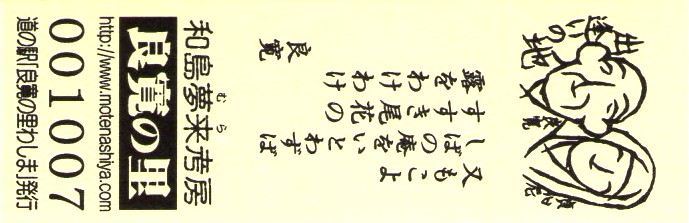 出逢いの地
良寛
貞心尼
又もこよ
しばの庵をいとわずば
すすき尾花の
露をわけわけ
良寛
むら
和島夢来考房
良寛の里
http://www.motenashiya.com
001007
道の駅「良寛の里わしま」発行